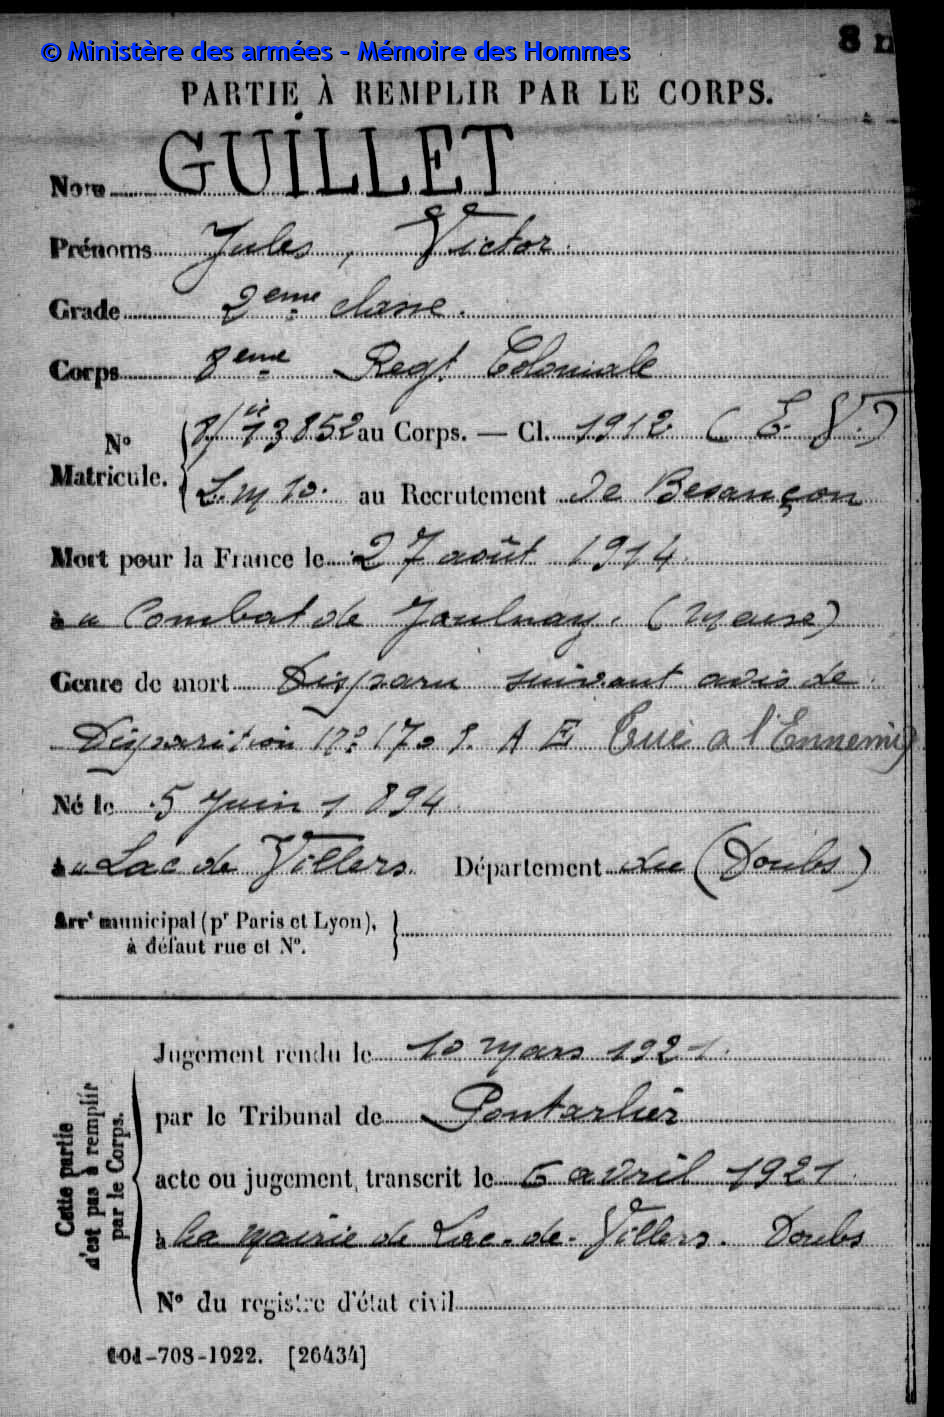 © Ministère des armées - Mémoire des Hommes
8 n
PARTIE À REMPLIR PAR LE CORPS.
Nom GUILLET
Prénoms Jules, Victor.
Grade 2eme classe.
Corps 8eme Regt. Coloniale
N° Matricule. 13852 au Corps. — Cl. 1912. (E. V.)
L.M 10. au Recrutement de Besançon
Mort pour la France le 27 août 1914.
à u Combat de Jaulnay. (Meuse)
Genre de mort Disparu suivant avis de
Disparition N° 1709. A E Tué a l'Ennemi
Né le 5 Juin 1894
à u Lac de Villers. Département du (Doubs)
Arrt municipal (pr Paris et Lyon),
à défaut rue et N°.
Cette partie
n'est pas à remplir
par le Corps.
Jugement rendu le 10 mars 1921.
par le Tribunal de Pontarlier
acte ou jugement transcrit le 6 avril 1921
à la mairie de Lac-de-Villers. Doubs
N° du registre d'état civil
101-708-1922. [26434]